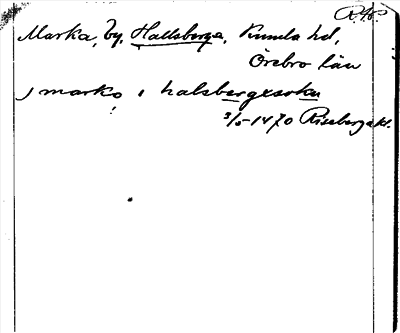 R.14.
Marka, by, Hallsberga, Kumla hd,
Örebro län
j marko i halsbergxsokn
3/5-1470 Risebergakl.